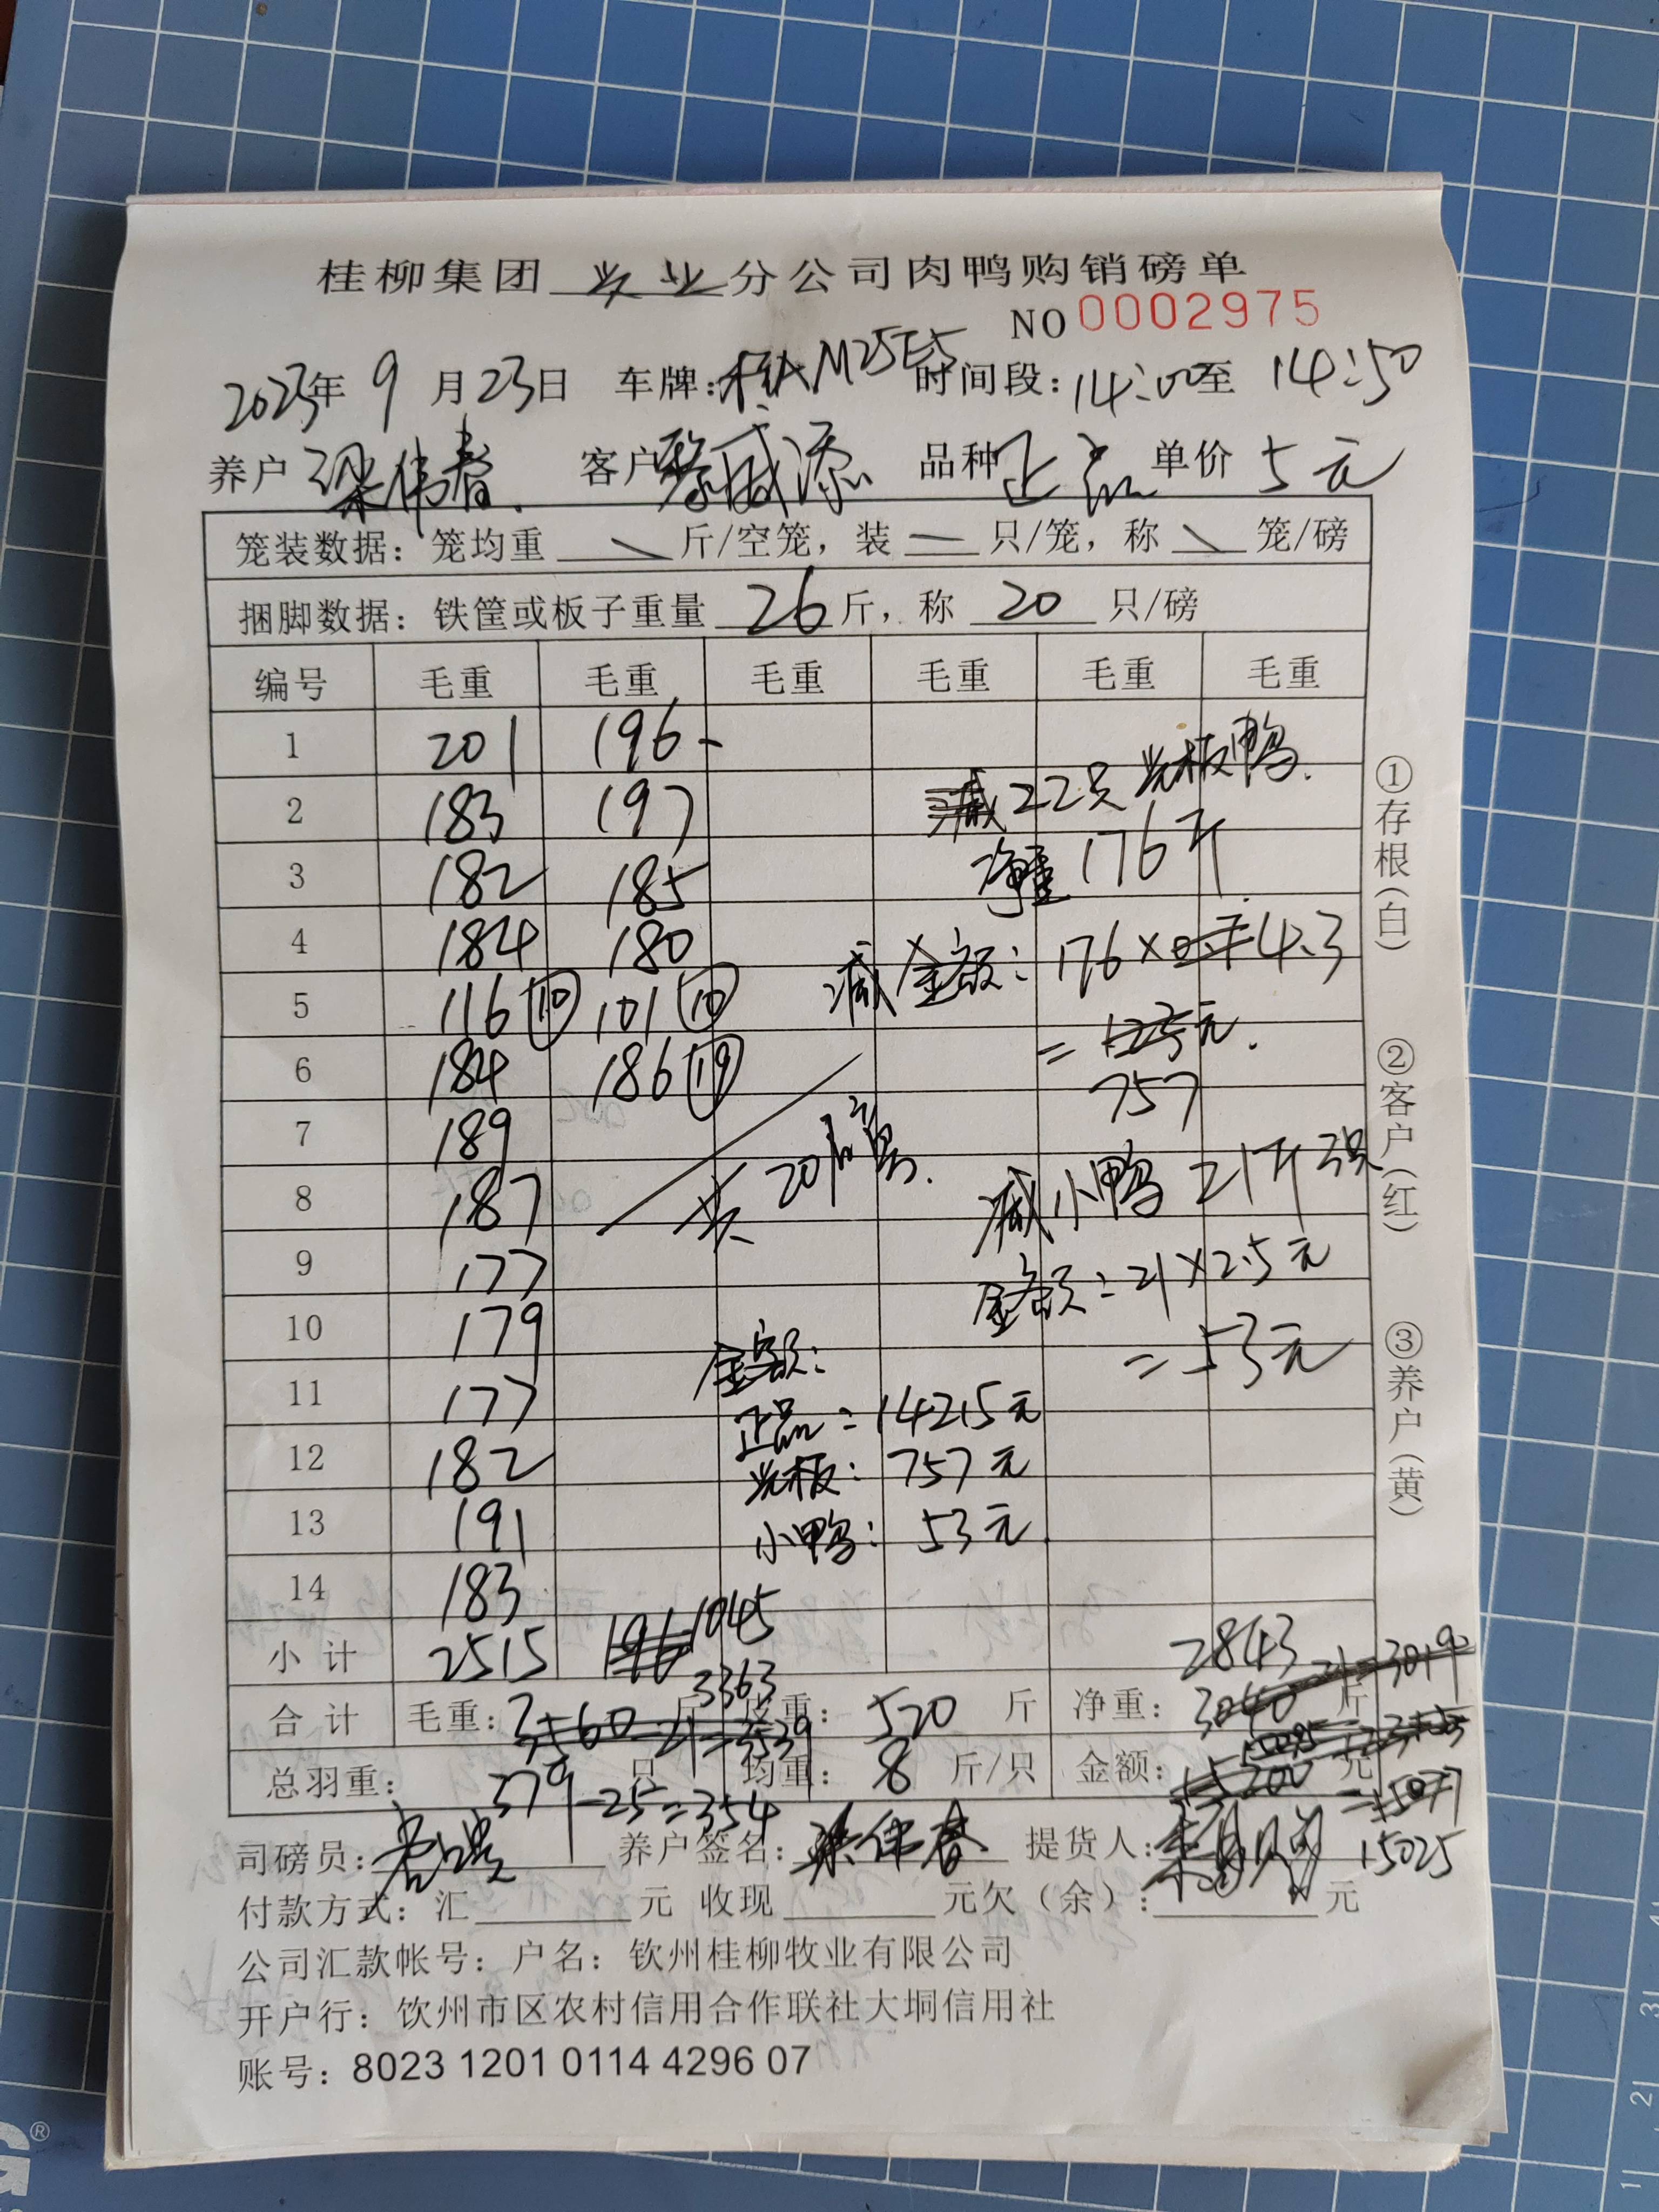 桂柳集团 兴业 分公司肉鸭购销磅单
NO 0002975
2023年 9 月 23 日 车牌：桂AM25E5 时间段：14:00 至 14:50
养户 梁伟春 客户 黎威添 品种 正品 单价 5元
笼装数据：笼均重 斤/空笼，装 只/笼，称 笼/磅
捆脚数据：铁筐或板子重量 26 斤，称 20 只/磅
编号 毛重 毛重 毛重 毛重 毛重 毛重
1 201 196
2 183 197 减22只光板鸭.
3 182 185 净重176斤
4 184 180 减金额：176×4.3
5 116⑩ 101⑩
6 184 186⑲ =125元.
757
7 189
共20磅.
8 187 减小鸭 21斤 3只
9 177 金额：21×2.5元
10 179 =53元
金额：
11 177 正品=14215元
12 182 光板：757元
13 191 小鸭：53元
14 183
小计 2515 196 1045 2843
合计 毛重：3560 斤 皮重：520 斤 净重：3040 斤
-21=3539 3363 -21=3019
总羽重： 379-25=354 只 均重：8 斤/只 金额：15200 元
=15077
15025
司磅员： 养户签名：梁伟春 提货人：
付款方式：汇 元 收现 元欠（余）： 元
公司汇款帐号：户名：钦州桂柳牧业有限公司
开户行：钦州市区农村信用合作联社大垌信用社
账号：8023 1201 0114 4296 07
①存根（白）
②客户（红）
③养户（黄）